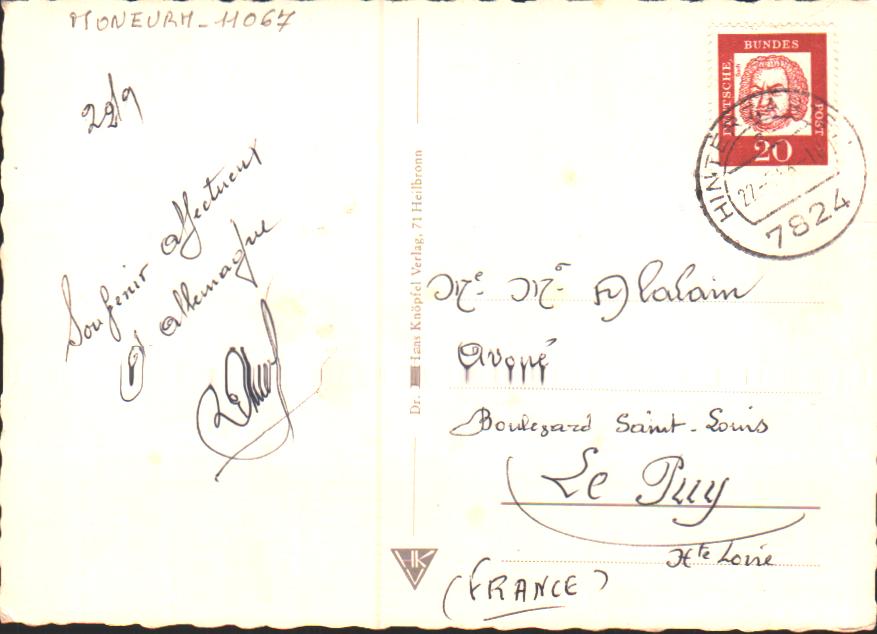 MONEURM - 11067
22/9
Souvenir affectueux
d'Allemagne
Dr. Hans Knöpfel Verlag, 71 Heilbronn
HK
DEUTSCHE BUNDES POST
20
HINTER
7824
Me. Mr
Avoué
Boulevard Saint-Louis
Le Puy
Hte Loire
(FRANCE)